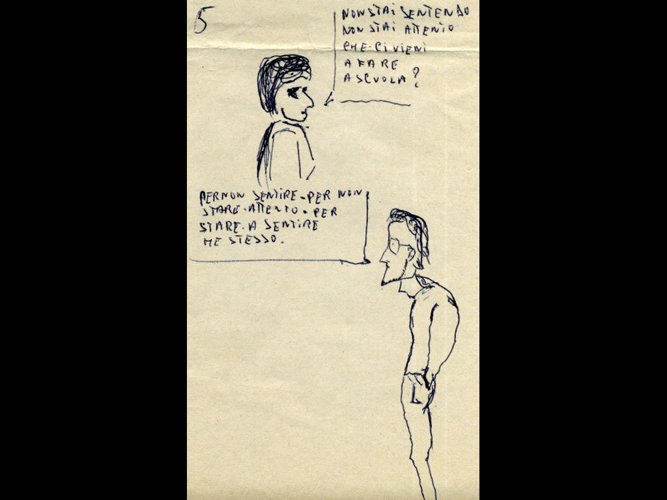 5
NON STAI SENTENDO
NON STAI ATTENTO
CHE CI VIENI
A FARE
A SCUOLA?
PER NON SENTIRE - PER NON
STARE - ATTENTO - PER
STARE - A SENTIRE
ME STESSO.